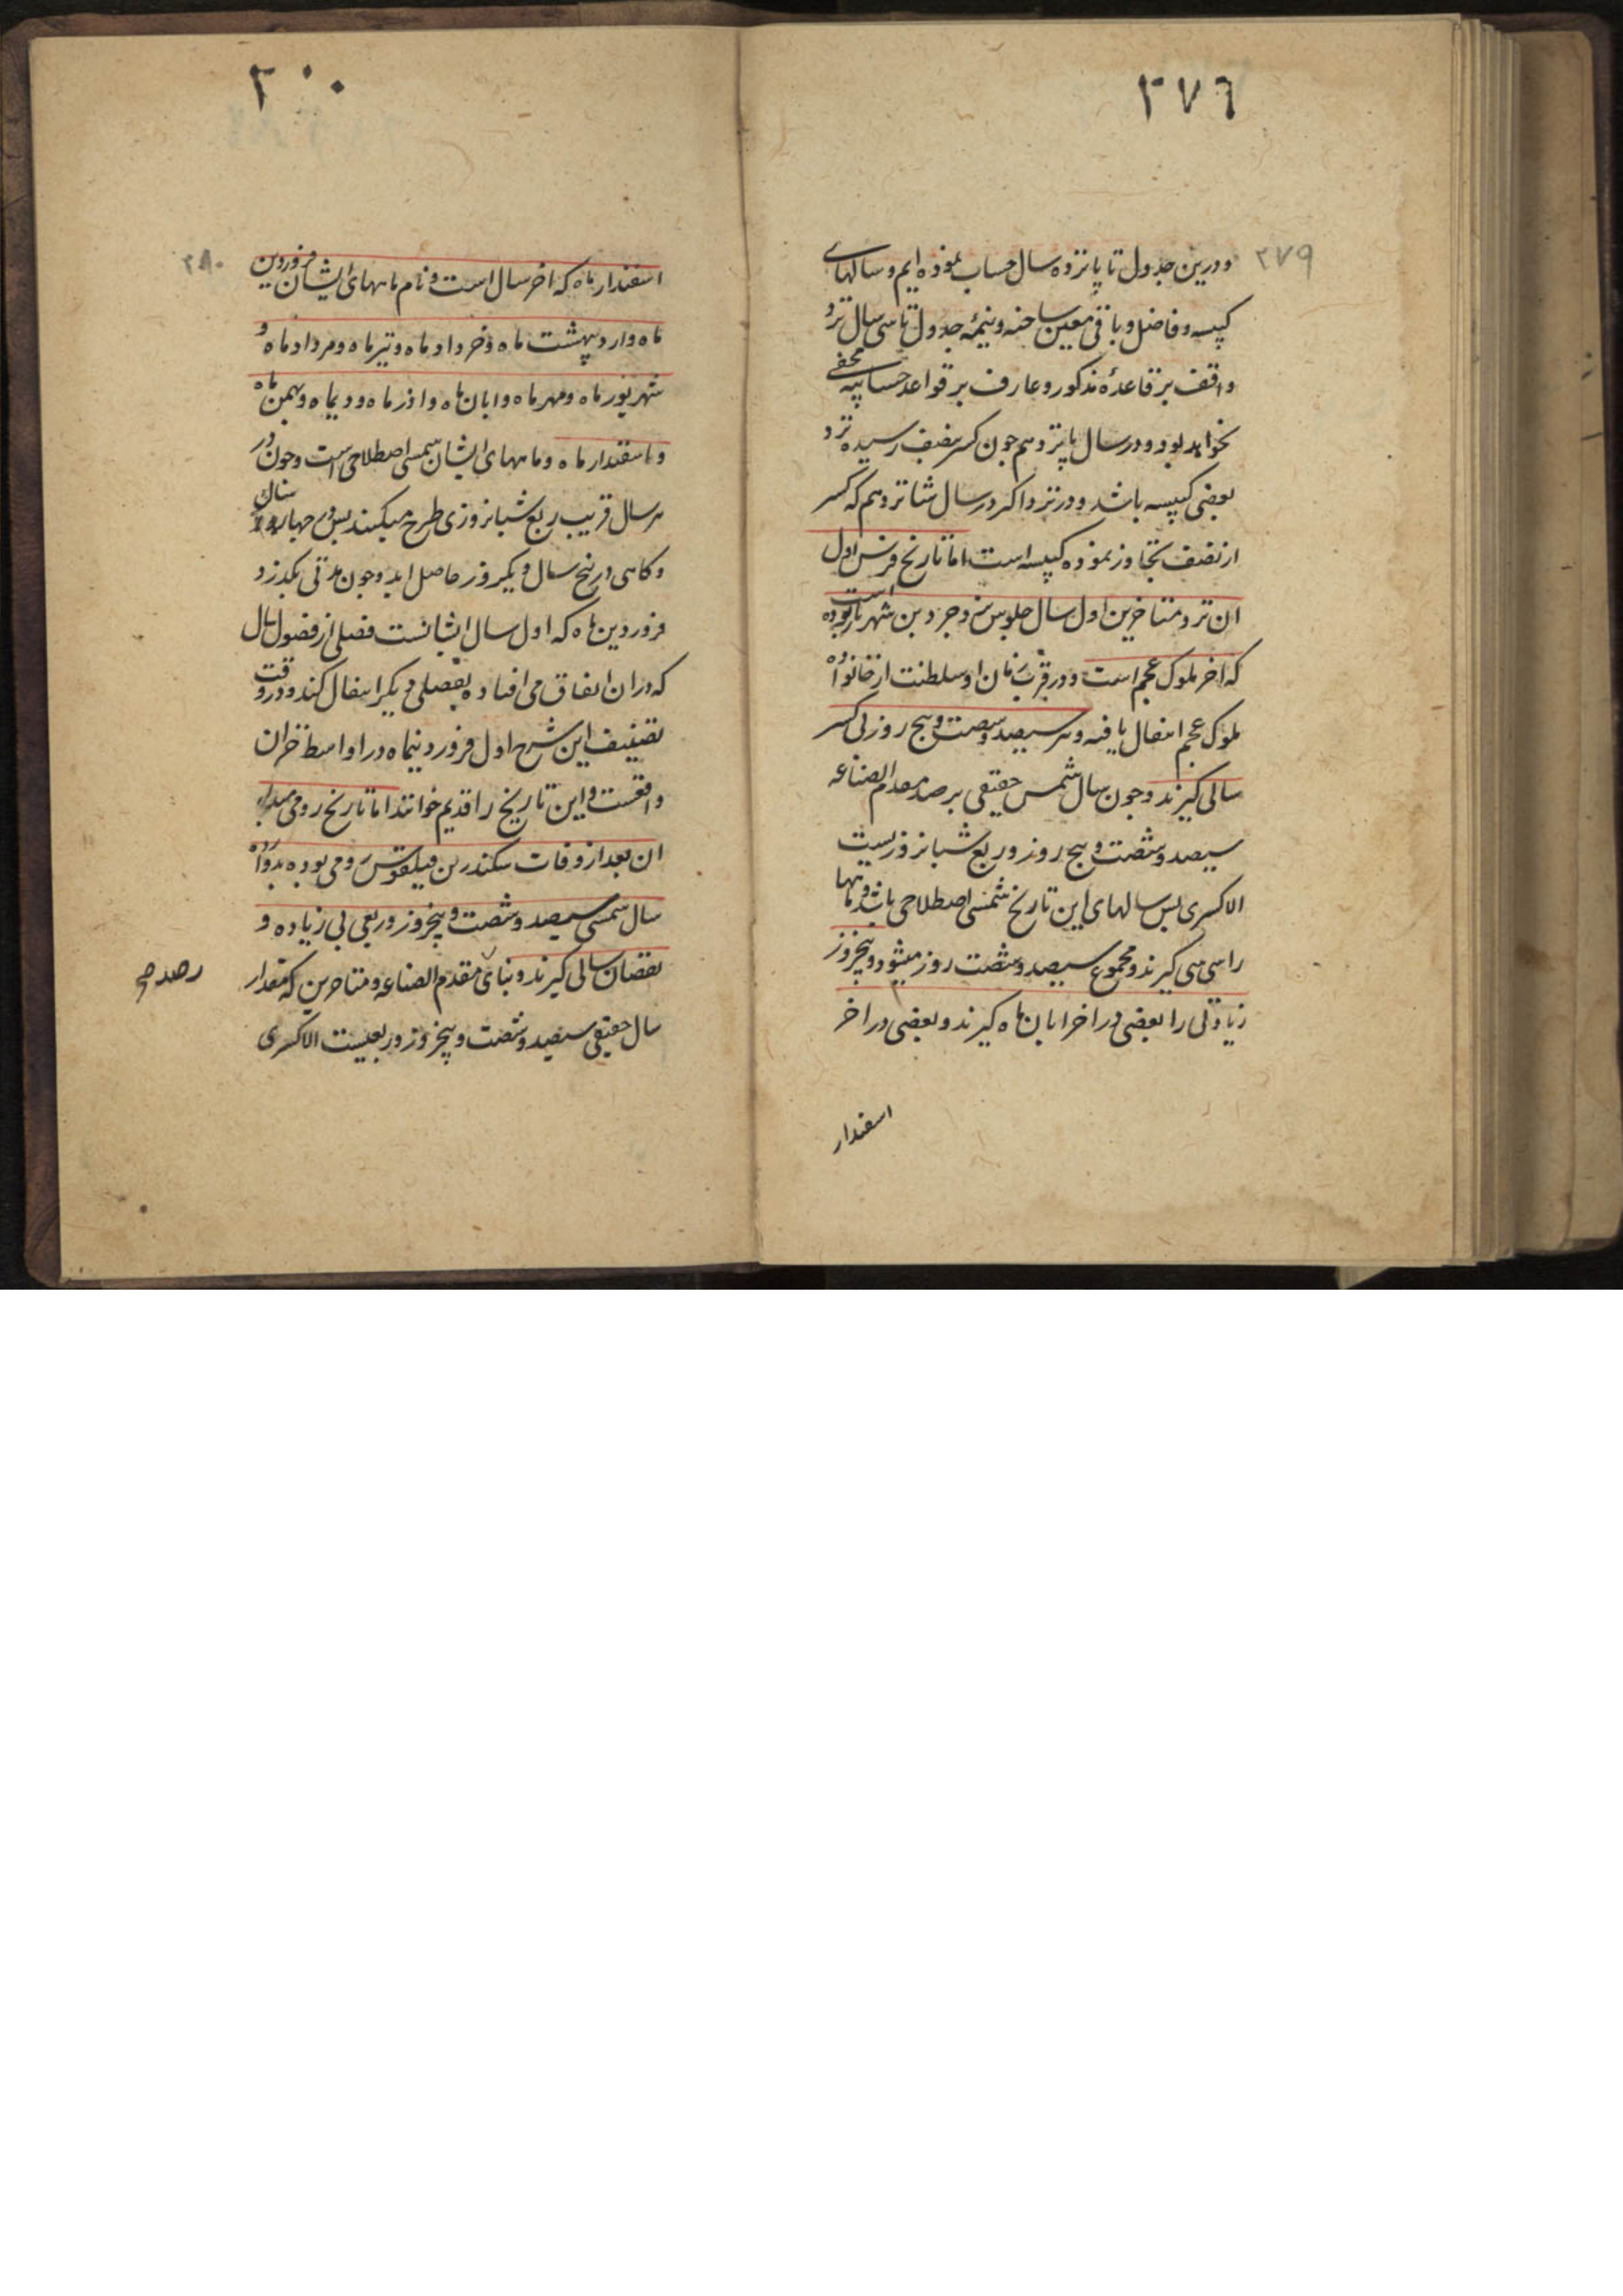 ۲۷۶
۲۷۹
و درین جدول تا پانزده سال حساب نموده ایم و سالهای
کپیسه و فاضل و باقی معین ساخته و تتمه جدول تا سی سال نزد
واقف بر قاعدهٔ مذکور و عارف بر قواعد حسابیه مخفی
نخواهد بود و در سال پانزدهم چون کسر بنصف رسیده نزد
بعضی کپیسه باشد و در نزد اکثر در سال شانزدهم که کسر
از نصف تجاوز نموده کپیسه است اما تاریخ فرس اول
ان نزد متاخرین اول سال جلوس یزدجرد بن شهریار بوده است
که اخر ملوک عجم است و در قرب زمان او سلطنت از خانواده
ملوک عجم انتقال یافته و هر سیصد و شصت و پنج روز بی کسر
سالی گیرند و چون سال شمس حقیقی برصد مقدم الصناعه
سیصد و شصت و پنج روز و ربع شبانروزیست
الا کسری پس سالهای این تاریخ شمسی اصطلاحی باشد و ماهها
را سی سی گیرند و مجموع سیصد و شصت روز میشود و پنجروز
زیادتی را بعضی در اخر ابان ماه گیرند و بعضی در اخر
اسفندار
۳۰۰
۲۸۰
اسفندار ماه که اخر سال است و نام ماههای ایشان فروردین
ماه و اردیبهشت ماه و خرداد ماه و تیر ماه و مرداد ماه و
شهریور ماه و مهر ماه و ابان ماه و اذر ماه و دیماه و بهمن ماه
و اسفندار ماه و ماههای ایشان شمسی اصطلاحی است و چون در
هر سال قریب ربع شبانروزی طرح میکنند پس در چهار سال
و کاهی در پنج سال و یکروز حاصل اید و چون مدتی بکذرد
فروردین ماه که اول سال ایشانست فصلی از فصول سال
که در ان اتفاق می افتاده بفصلی دیکر انتقال کند و در وقت
تصنیف این شرح اول فروردینماه در اواسط خزان
واقعست و این تاریخ را قدیم خوانند اما تاریخ رومی مبداء
ان بعد از وفات سکندر بن فیلقوس رومی بوده بدوازده
سال شمسی سیصد و شصت و پنجروز و ربعی بی زیاده و
نقصان سالی گیرند و بنای مقدم الصناعه و متاخرین که مقدار
رصد
سال حقیقی سیصد و شصت و پنجروز و ربعیست الا کسری